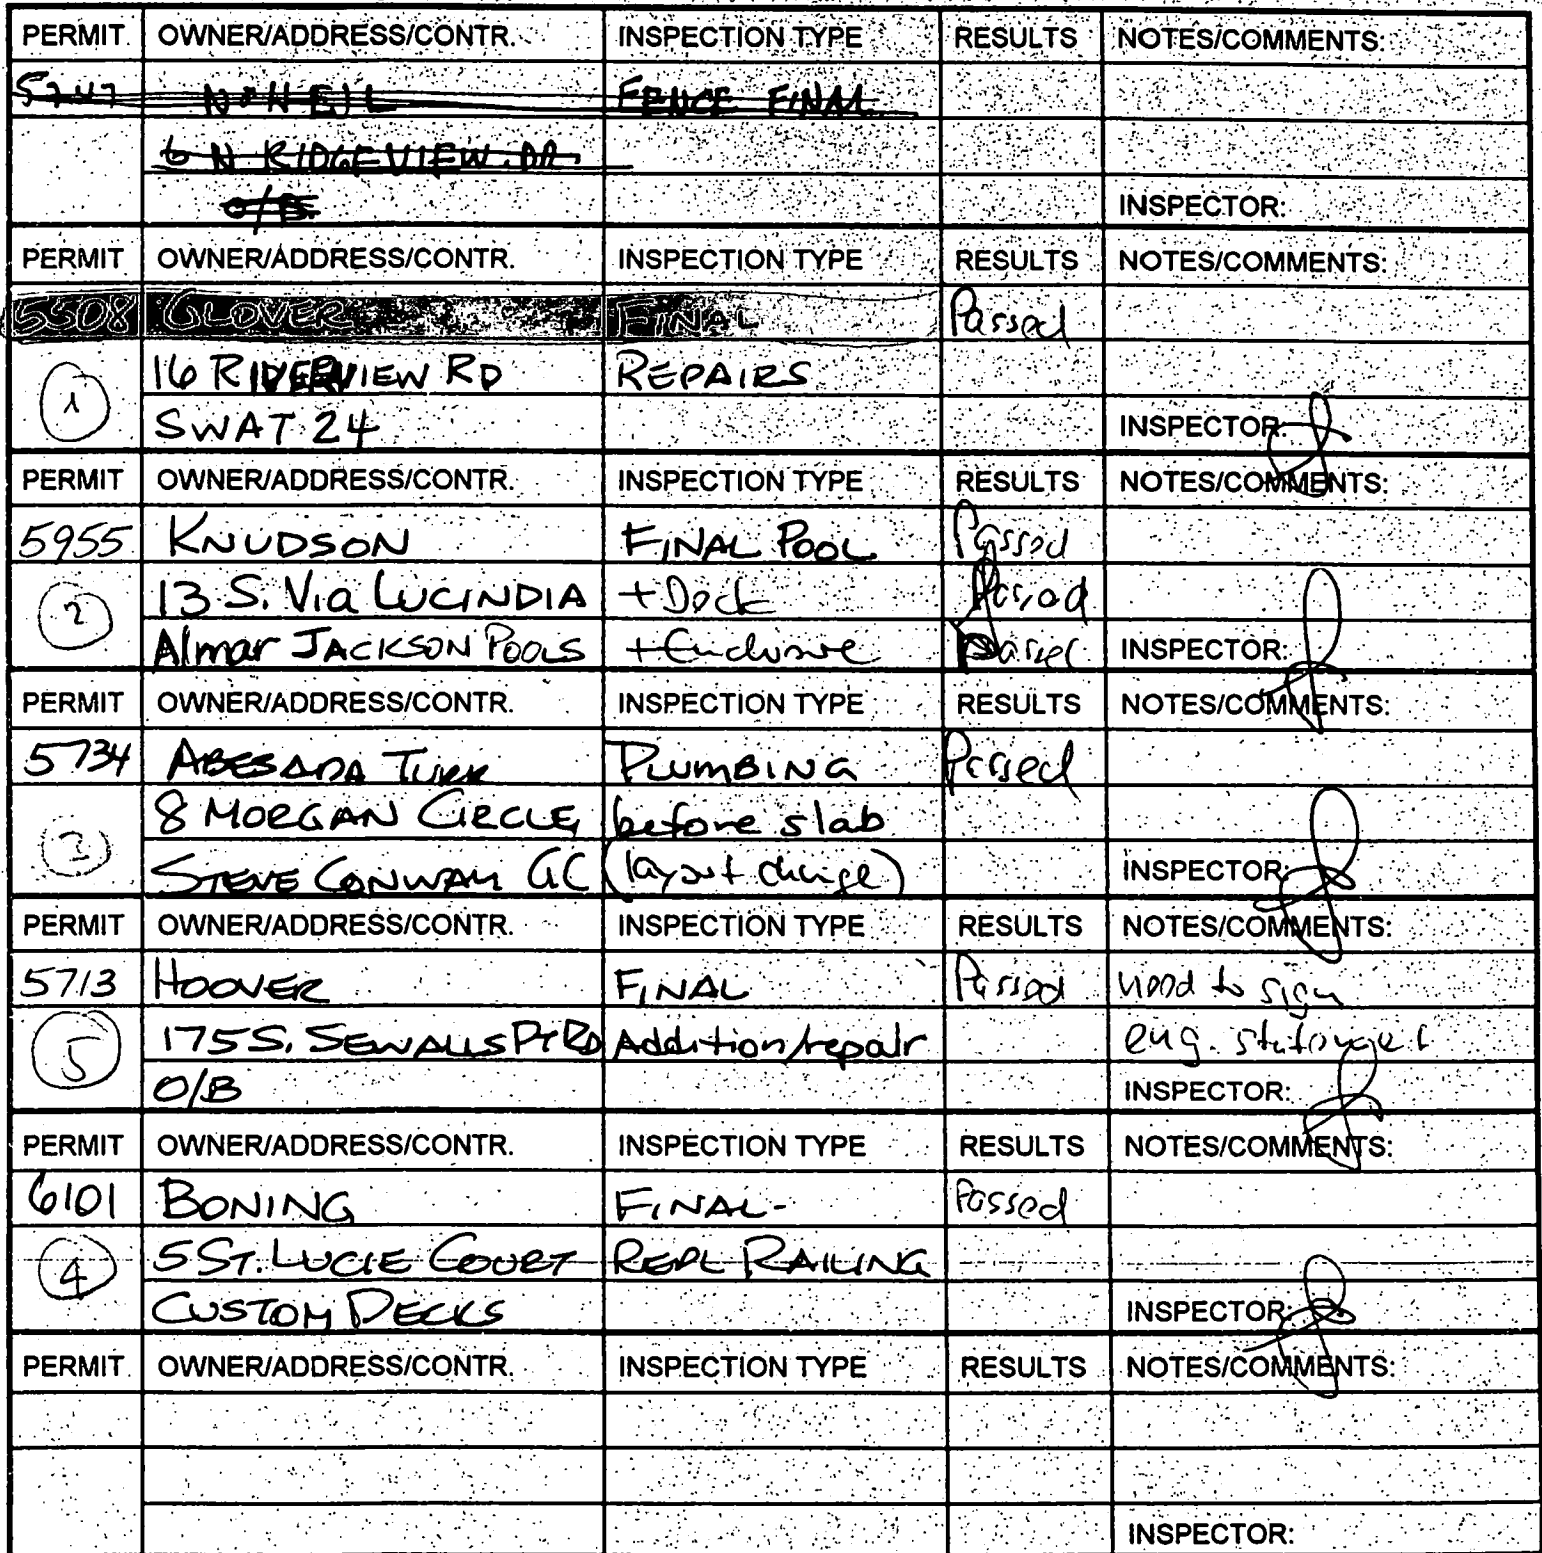 PERMIT OWNER/ADDRESS/CONTR. INSPECTION TYPE RESULTS NOTES/COMMENTS:
FENCE FINAL
6 N RIDGEVIEW DR
O/B
INSPECTOR:
PERMIT OWNER/ADDRESS/CONTR. INSPECTION TYPE RESULTS NOTES/COMMENTS:
5508 GLOVER FINAL Passed
1 16 RIVERVIEW RD REPAIRS
SWAT 24 INSPECTOR:
PERMIT OWNER/ADDRESS/CONTR. INSPECTION TYPE RESULTS NOTES/COMMENTS:
5955 KNUDSON FINAL POOL Passed
2 13 S. Via LUCINDIA + Dock Passed
Almar JACKSON POOLS + Enclosure Passed INSPECTOR:
PERMIT OWNER/ADDRESS/CONTR. INSPECTION TYPE RESULTS NOTES/COMMENTS:
5734 ABESADA TURK PLUMBING Passed
3 8 MORGAN CIRCLE before slab
STEVE CONWAY GC (layout change) INSPECTOR:
PERMIT OWNER/ADDRESS/CONTR. INSPECTION TYPE RESULTS NOTES/COMMENTS:
5713 HOOVER FINAL Passed need to sign
5 175 S. SEWALLS PT RD Addition/repair eng. statement
O/B INSPECTOR:
PERMIT OWNER/ADDRESS/CONTR. INSPECTION TYPE RESULTS NOTES/COMMENTS:
6101 BONING FINAL- Passed
4 5 ST. LUCIE COURT REPL RAILING
CUSTOM DECKS INSPECTOR:
PERMIT OWNER/ADDRESS/CONTR. INSPECTION TYPE RESULTS NOTES/COMMENTS:
INSPECTOR: